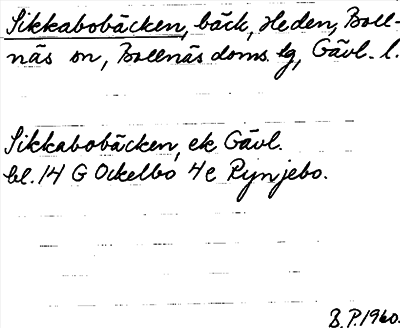 Sikkabobäcken, bäck, Heden, Boll-
näs sn, Bollnäs doms. lg, Gävl. l.
Sikkabobäcken, ek Gävl.
bl. 14 G Ockelbo 4e Rynjebo.
B.P. 1960.